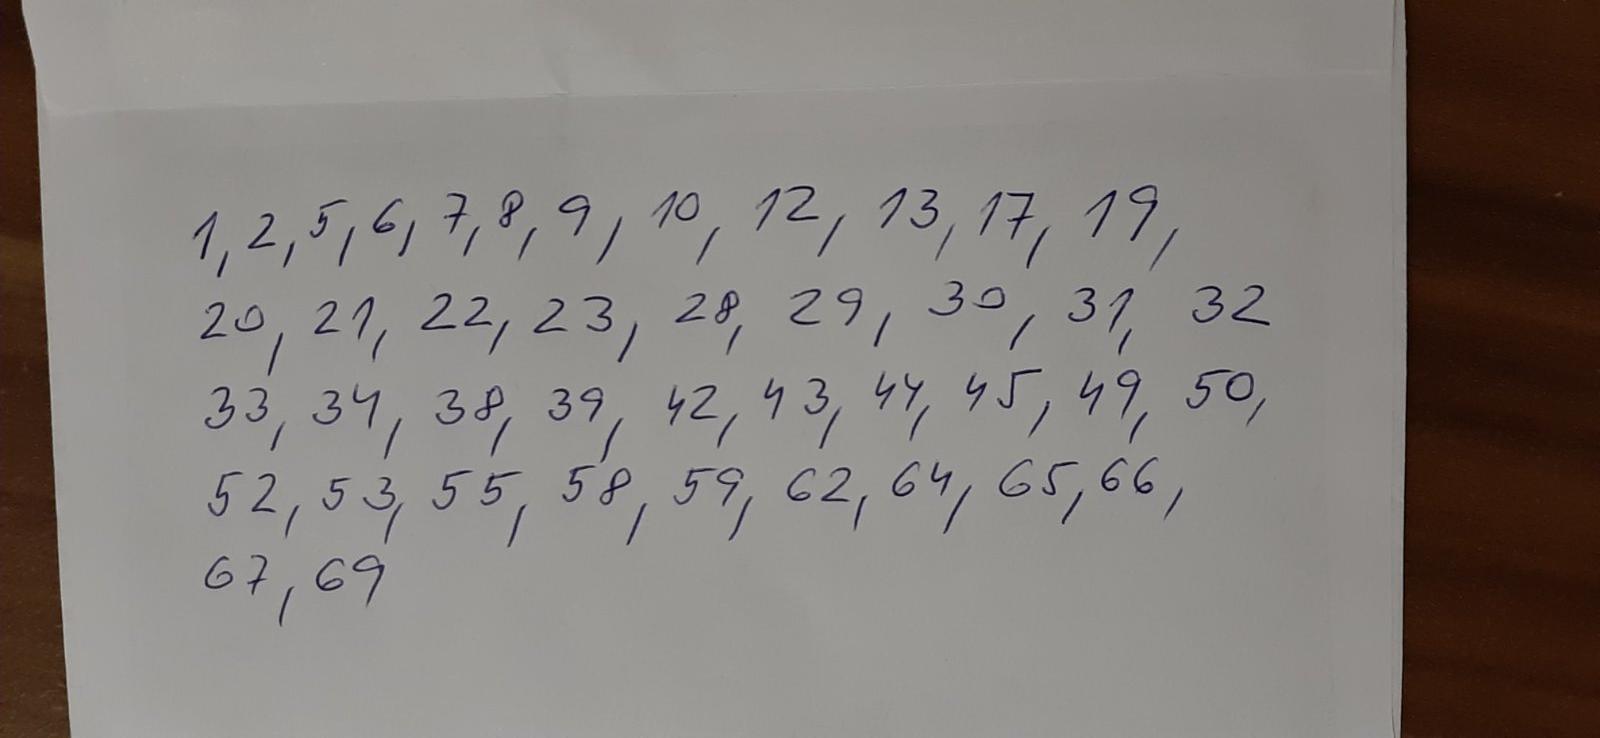 1, 2, 5, 6, 7, 8, 9, 10, 12, 13, 17, 19,
20, 21, 22, 23, 28, 29, 30, 31, 32
33, 34, 38, 39, 42, 43, 44, 45, 49, 50,
52, 53, 55, 58, 59, 62, 64, 65, 66,
67, 69